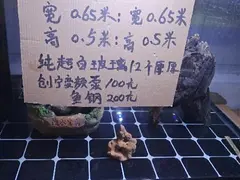 宽 0.65米: 宽 0.65米
高 0.5米: 高 0.5米
纯超白玻璃12个厘厚
创宁变频泵 100元
鱼钢 200元